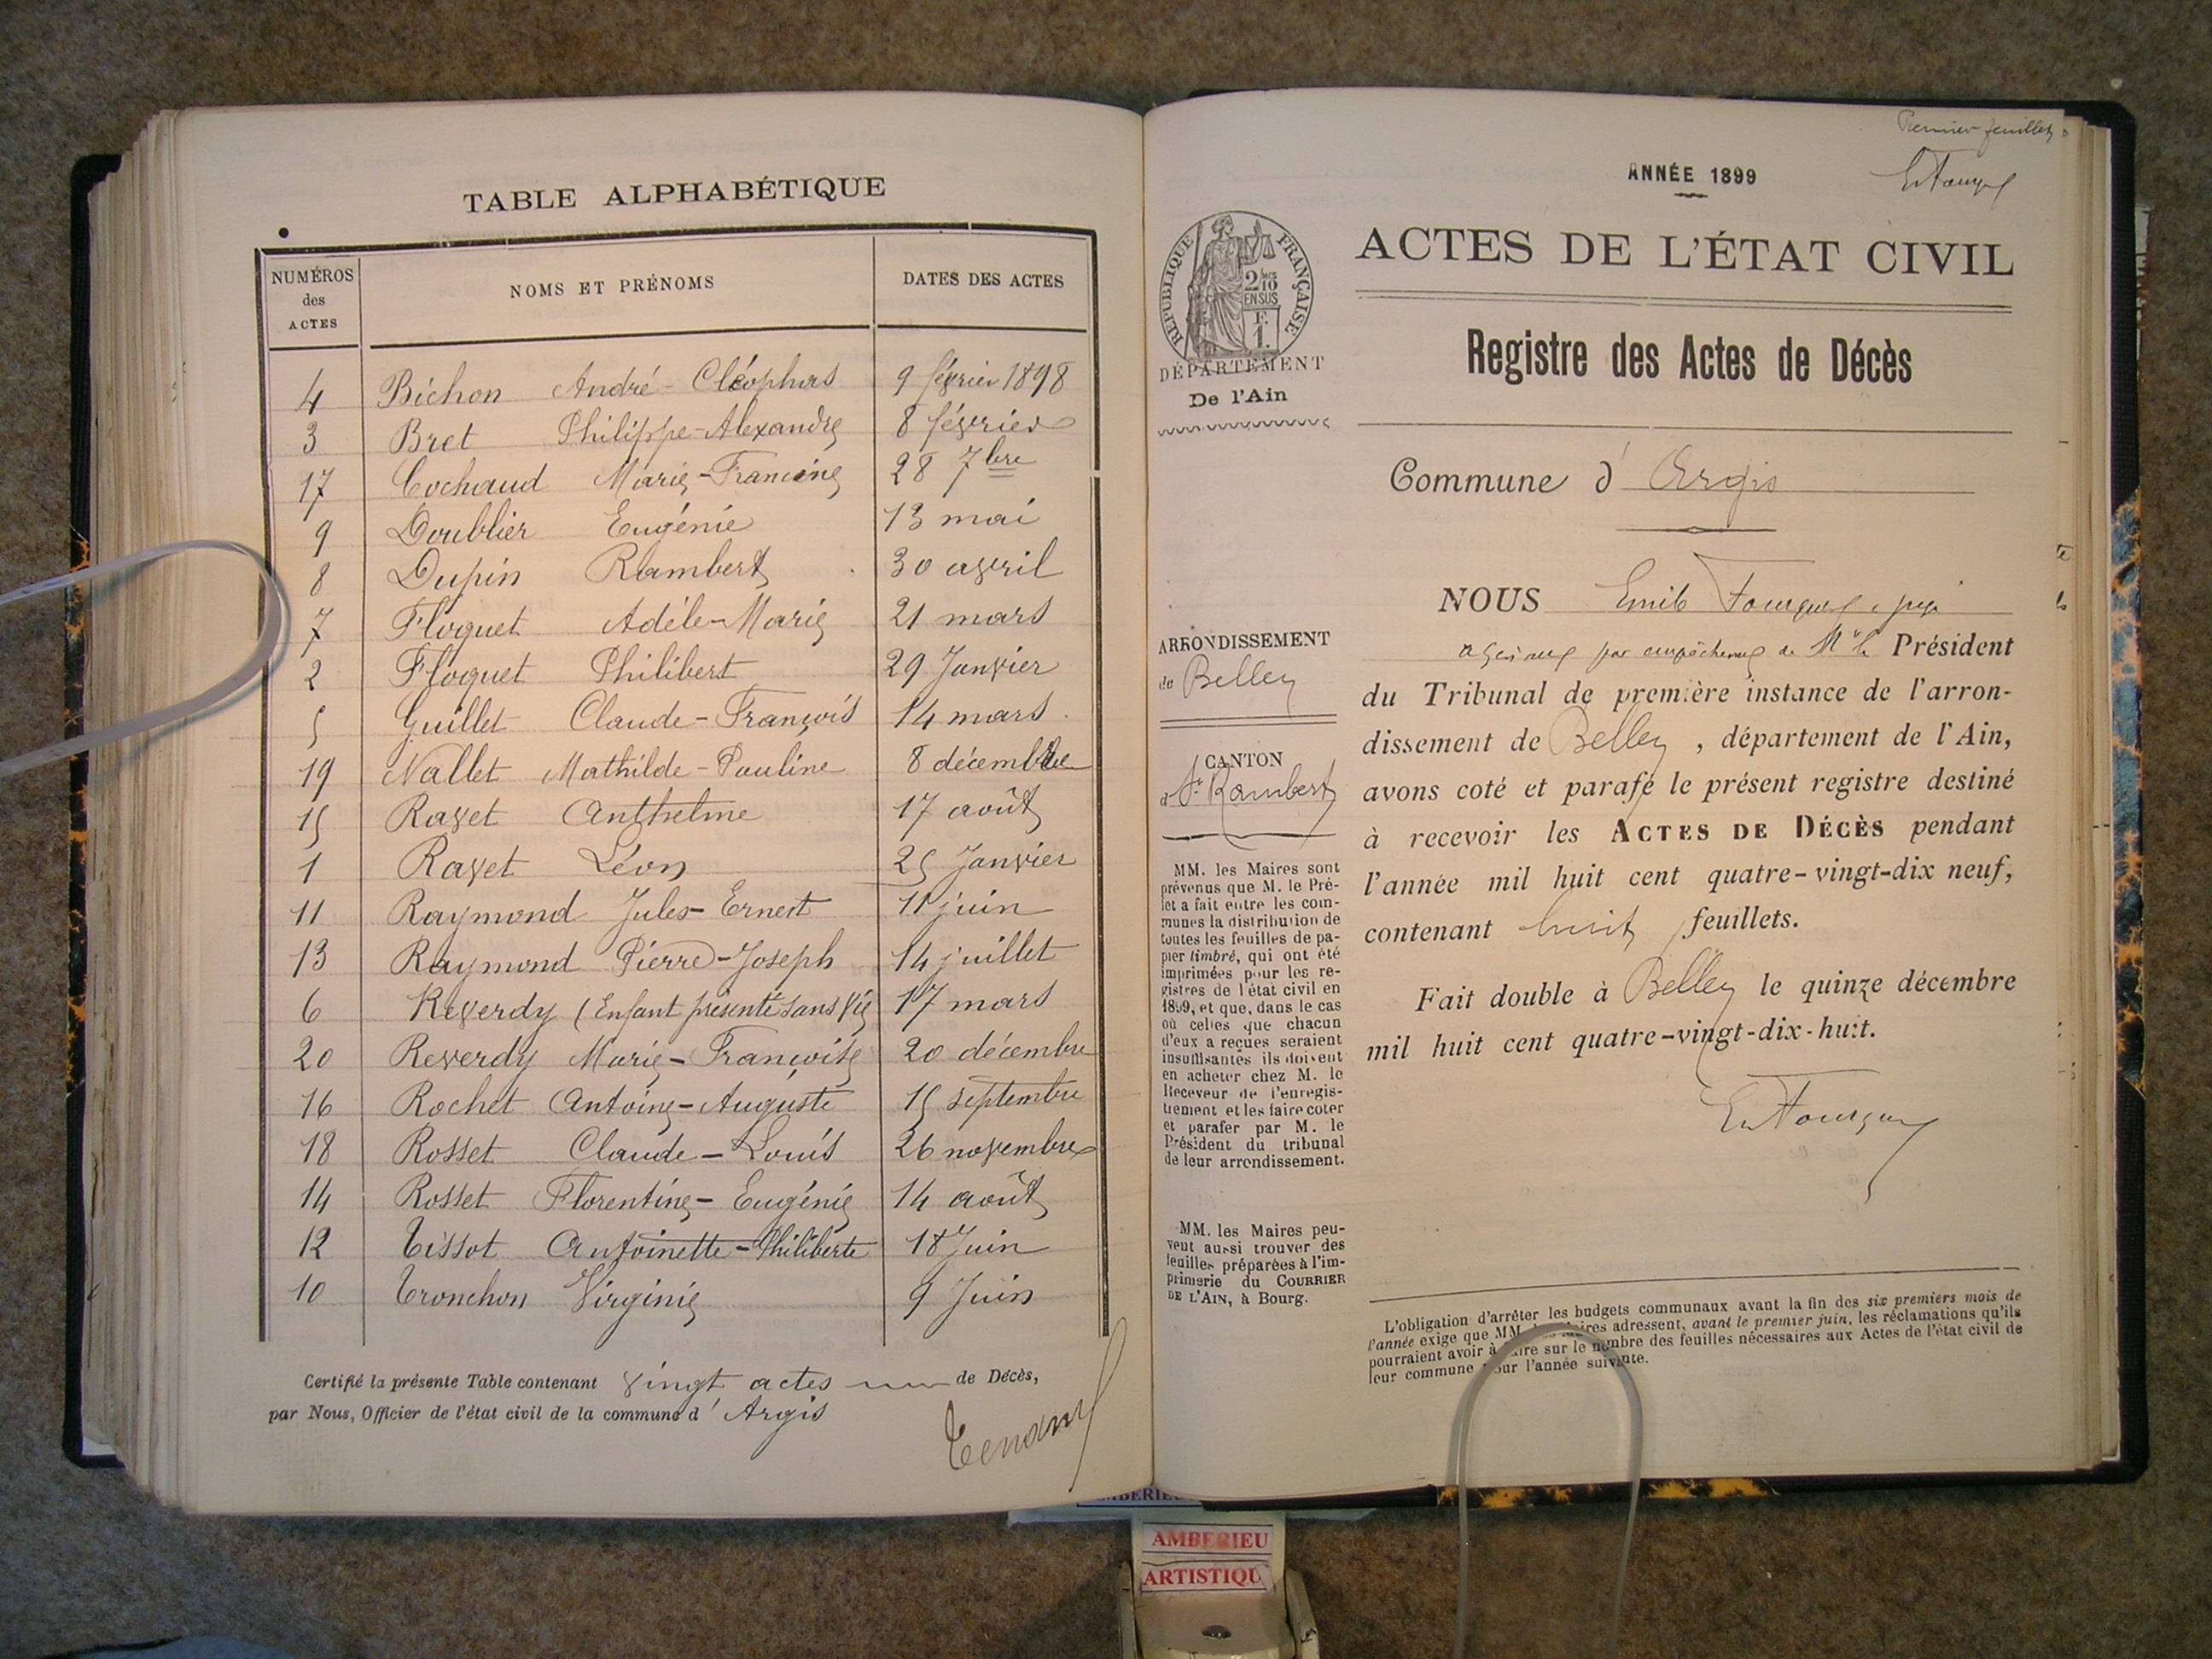 TABLE ALPHABÉTIQUE
NUMÉROS des ACTES NOMS ET PRÉNOMS DATES DES ACTES
4 Bichon André-Cléophas 9 février 1898
3 Bret Philippe-Alexandre 8 février
17 Cochaud Marie-Francine 28 7bre
9 Doublier Eugénie 13 mai
8 Dupin Rambert 30 avril
7 Floquet Adèle-Marie 21 mars
2 Floquet Philibert 29 Janvier
5 Guillet Claude-François 14 mars
19 Nallet Mathilde-Pauline 8 décembre
15 Ravet Anthelme 17 août
1 Ravet Léon 25 Janvier
11 Raymond Jules-Ernest 11 juin
13 Raymond Pierre-Joseph 14 juillet
6 Reverdy (Enfant présenté sans vie 17 mars
20 Reverdy Marie-Françoise 20 décembre
16 Rochet Antoine-Auguste 15 septembre
18 Rosset Claude-Louis 26 novembre
14 Rosset Florentine-Eugénie 14 août
12 Tissot Antoinette-Philiberte 18 Juin
10 Tronchon Virginie 9 Juin
Certifié la présente Table contenant vingt actes de Décès,
par Nous, Officier de l'état civil de la commune d' Argis
Tenand
Premier feuillet
ANNÉE 1899
ACTES DE L'ÉTAT CIVIL
RÉPUBLIQUE FRANÇAISE
2/10
EN SUS
F.
1.
DÉPARTEMENT
De l'Ain
Registre des Actes de Décès
Commune d' Argis
ARRONDISSEMENT
de Belley
CANTON
d St Rambert
MM. les Maires sont
prévenus que M. le Pré-
fet a fait entre les com-
munes la distribution de
toutes les feuilles de pa-
pier timbré, qui ont été
imprimées pour les re-
gistres de l'état civil en
1899, et que, dans le cas
où celles que chacun
d'eux a reçues seraient
insuffisantes ils doivent
en acheter chez M. le
Receveur de l'enregis-
trement et les faire coter
et parafer par M. le
Président du tribunal
de leur arrondissement.
MM. les Maires peu-
vent aussi trouver des
feuilles préparées à l'im-
primerie du COURRIER
DE L'AIN, à Bourg.
NOUS Emile Fourquet, juge
par empêchement de Mr le Président
du Tribunal de première instance de l'arron-
dissement de Belley, département de l'Ain,
avons coté et parafé le présent registre destiné
à recevoir les ACTES DE DÉCÈS pendant
l'année mil huit cent quatre-vingt-dix neuf,
contenant huit feuillets.
Fait double à Belley le quinze décembre
mil huit cent quatre-vingt-dix-huit.
Em Fourquet
L'obligation d'arrêter les budgets communaux avant la fin des six premiers mois de
l'année exige que MM. les Maires adressent, avant le premier juin, les réclamations qu'ils
pourraient avoir à faire sur le nombre des feuilles nécessaires aux Actes de l'état civil de
leur commune pour l'année suivante.
AMBERIEU
AMBERIEU
ARTISTIQU